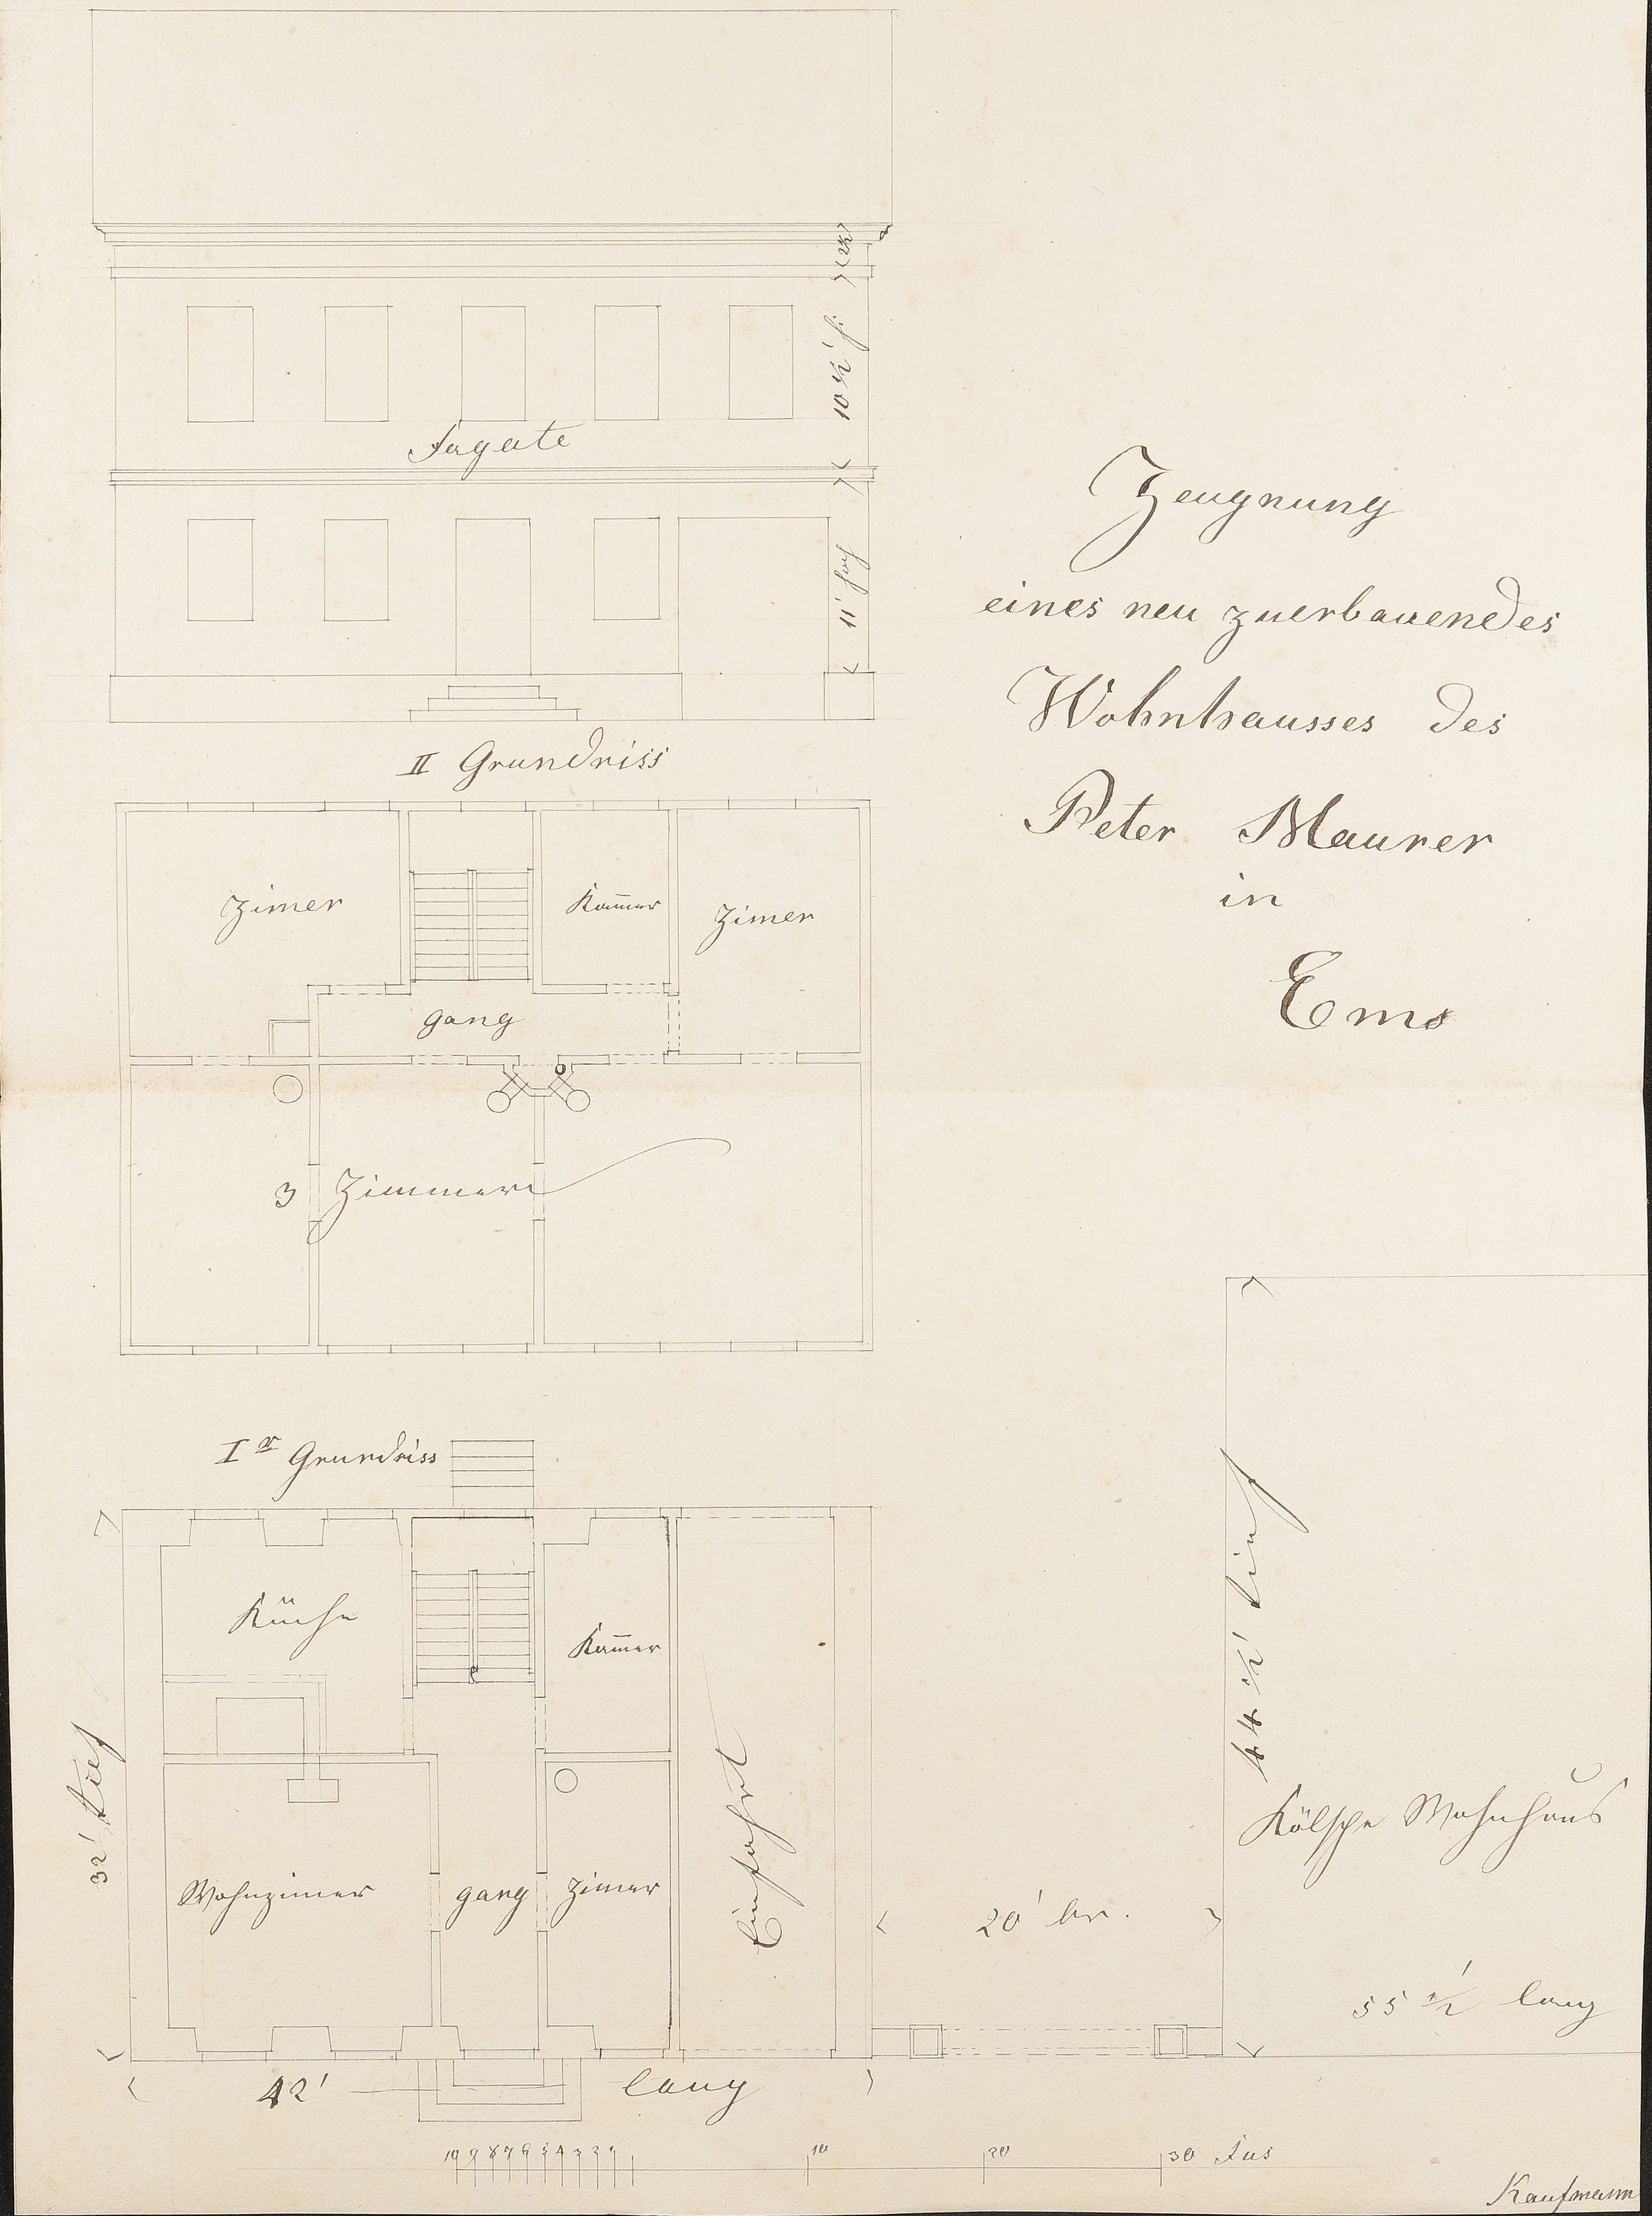 10 ½' h:
Fagate
11' hoch
Zeugnung
eines neu zuerbauendes
Wohnhausses des
Peter Maurer
in
Ems
II Grundriss
Zimer
Kam̅er
Zimer
gang
3 Zimmere
I r Grundriss
Küche
Kam̅er
32' tief
Wohnzimer
gang
Zimer
Einfahrt
20' br.
44 ½' tief
Kölsche Wohnhaus
55 ½' lang
42' lang
10 9 8 7 6 5 4 3 2 1 10 20 30 Fus
Kaufmann